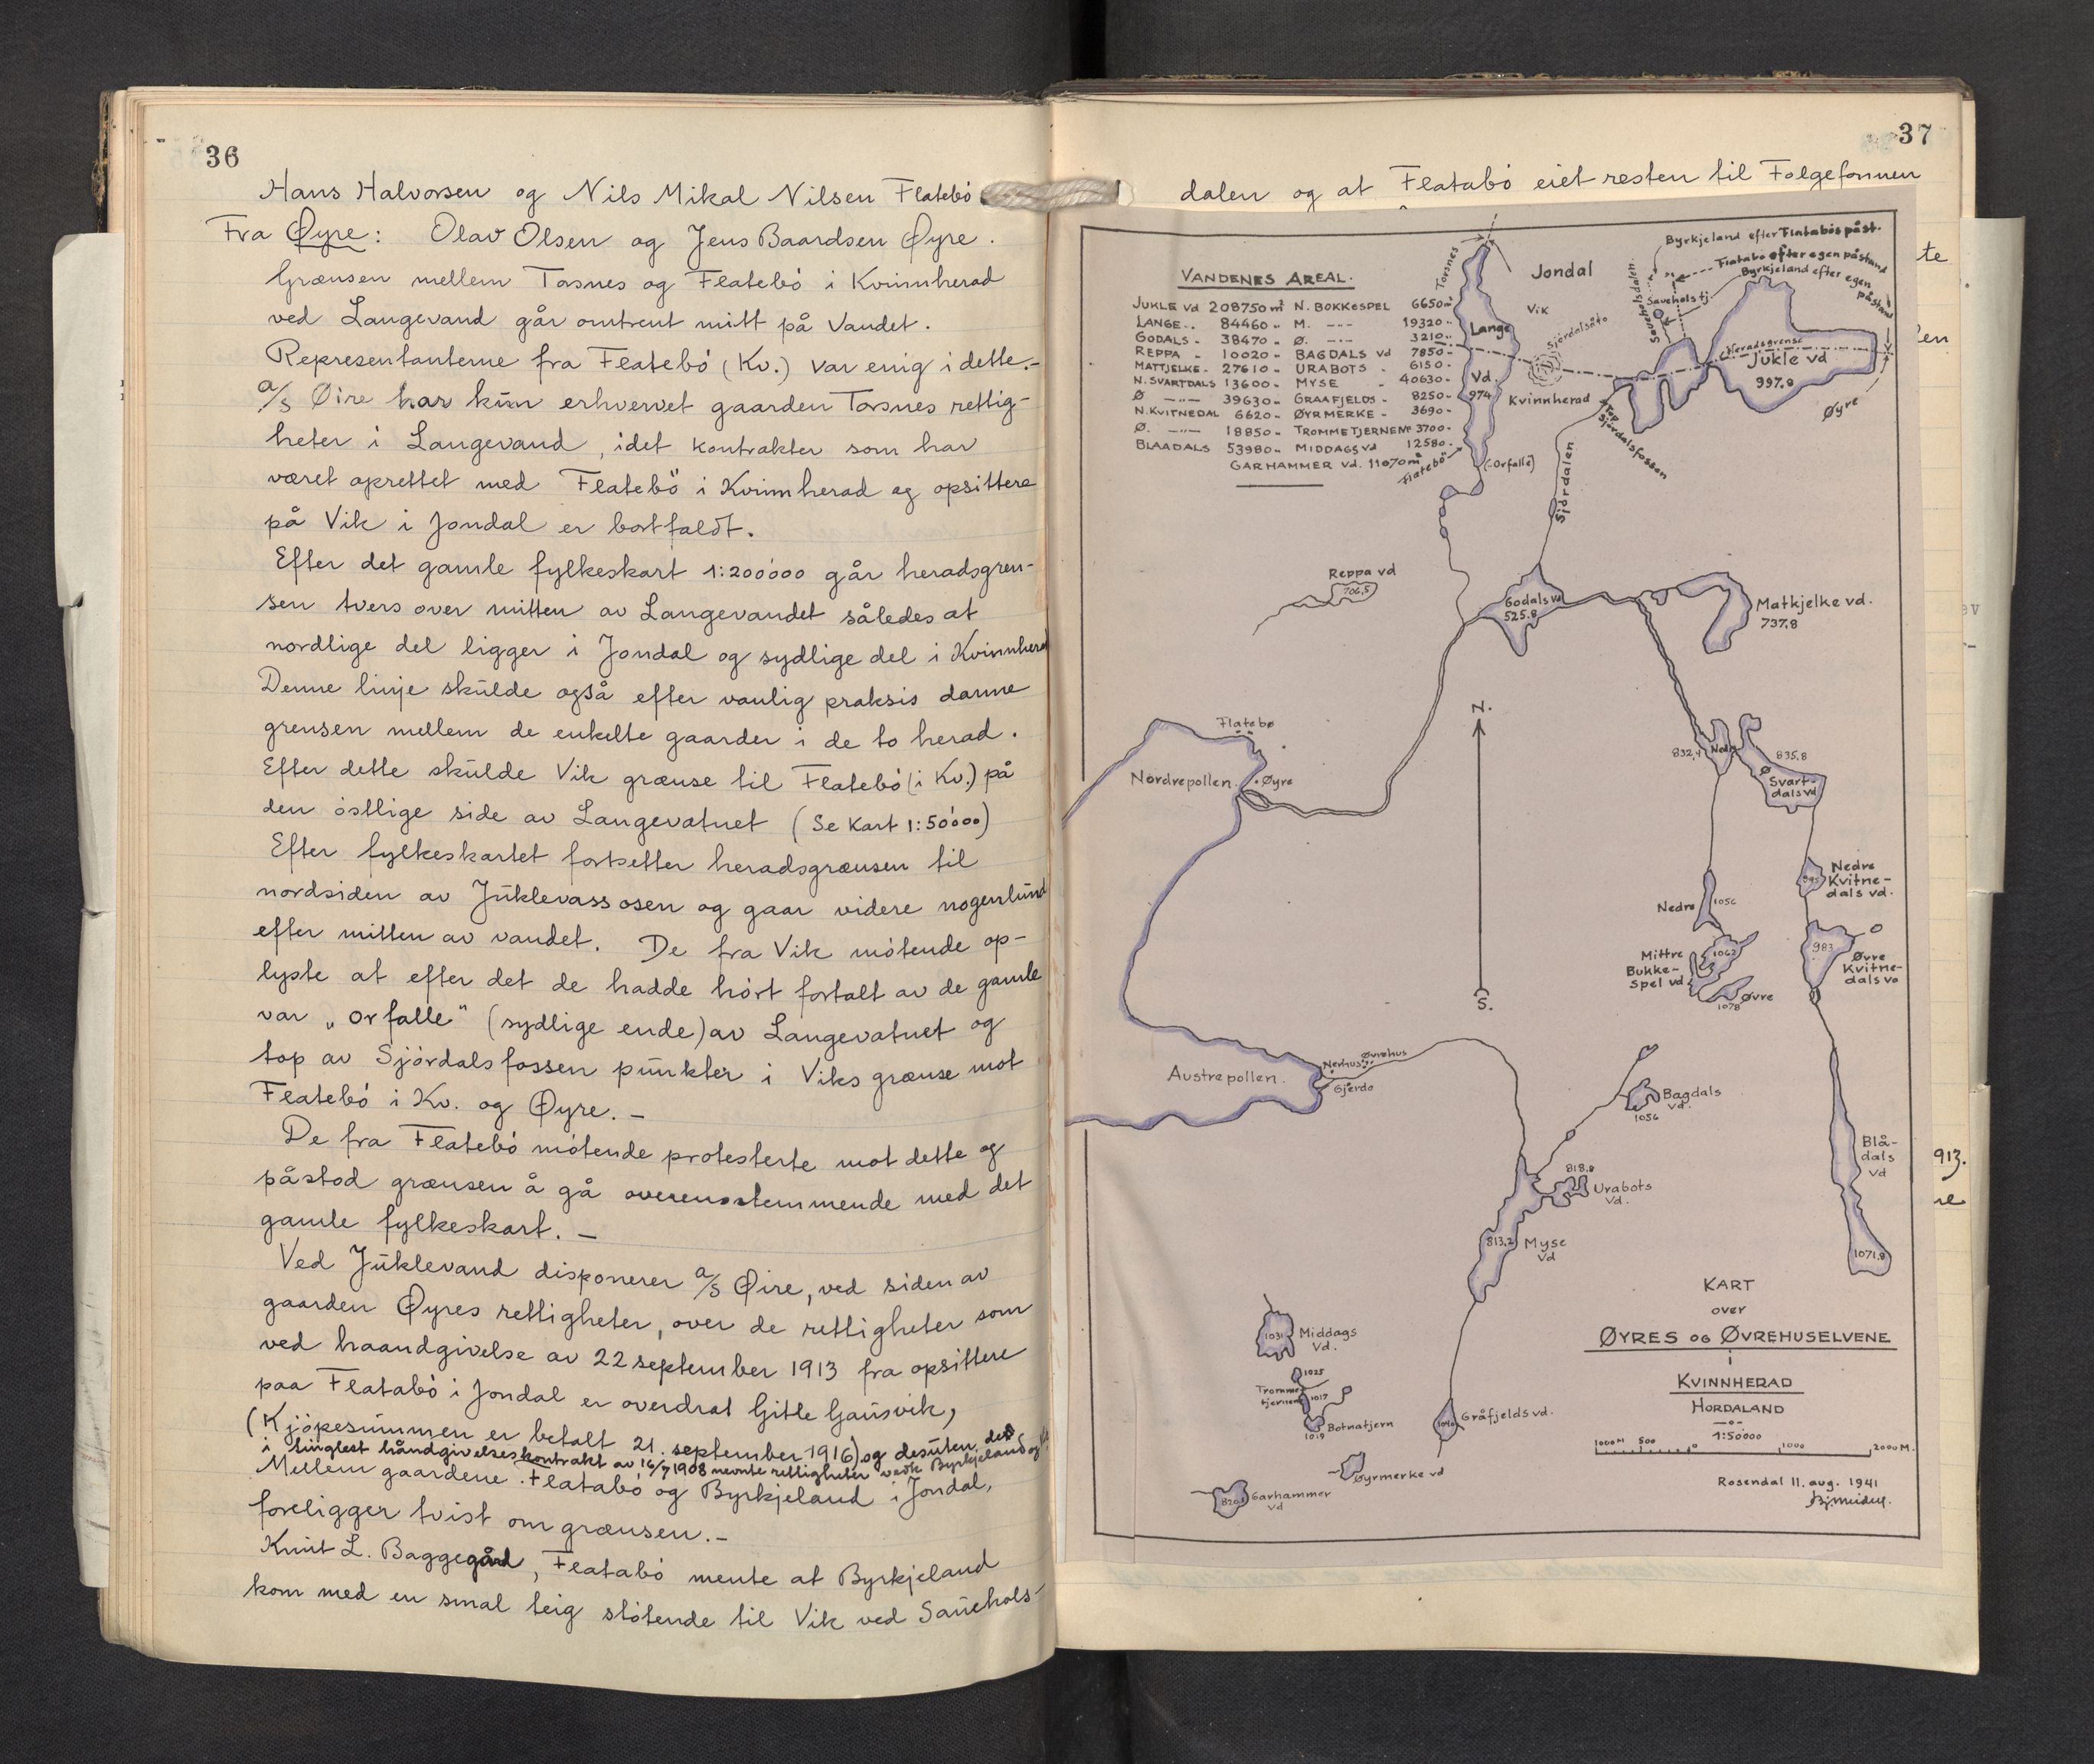 36
Hans Halvorsen og Nils Mikal Nilsen Flatebö
Fra Øyre: Olav Olsen og Jens Baardsen Øyre.
Grænsen mellem Torsnes og Flatebö i Kvinnherad
ved Langevand går omtrent mitt på Vandet.
Representanterne fra Flatebö (Kv.) var enig i dette.-
a/s Øire har kun erhvervet gaarden Torsnes rettig-
heter i Langevand, idet kontrakter som har
været oprettet med Flatebö i Kvinnherad og opsittere
på Vik i Jondal er bortfaldt.
Efter det gamle fylkeskart 1:200000 går heradsgren-
sen tvers over mitten av Langevandet således at
nordlige del ligger i Jondal og sydlige del i Kvinnherad
Denne linje skulde også efter vanlig praksis danne
grensen mellem de enkelte gaarder i de to herad.
Efter dette skulde Vik grænse til Flatebö (i Kv.) på
den östlige side av Langevatnet (Se Kart 1:50000)
Efter fylkeskartet fortsetter heradsgrænsen til
nordsiden av Juklevassosen og gaar videre nogenlund
efter mitten av vandet. De fra Vik mötende op-
lyste at efter det de hadde hört fortalt av de gamle
var „orfalle" (sydlige ende) av Langevatnet og
top av Sjördalsfossen punkter i Viks grænse mot
Flatebö i Kv. og Øyre. -
De fra Flatebö mötende protesterte mot dette og
påstod grænsen å gå overensstemmende med det
gamle fylkeskart. -
Ved Juklevand disponerer a/s Øire, ved siden av
gaarden Øyres rettigheter, over de rettigheter som
ved haandgivelse av 22 september 1913 fra opsittere
paa Flatabö i Jondal er overdrat Gitle Gausvik,
(Kjöpesummen er betalt 21. september 1916) og desuten de
i tinglest håndgivelseskontrakt av 16/7 1908 nevnte rettigheter vedk Byrkjeland og
Mellem gaardene Flatabö og Byrkjeland i Jondal,
foreligger tvist om grænsen. -
Knut L. Baggegård, Flatabö mente at Byrkjeland
kom med en smal teig stötende til Vik ved Sauehols-
37
dalen og at Flatabö eiet resten til Folgefonnen
te
len
913.
re
VANDENES AREAL.
JUKLE Vd 208750 m² N. BOKKESPEL 6650 m²
LANGE " 84460 " M. -"- 19320 "
GODALS " 38470 " Ø. -"- 3210 "
REPPA " 10020 " BAGDALS vd 7850 "
MATTJELKE " 27610 " URABOTS " 6150 "
N. SVARTDALS 13600 " MYSE " 40630 "
Ø -"- 39630 " GRAAFJELDS " 8250 "
N. KVITNEDAL 6620 " ØYRMERKE " 3690 "
Ø. -"- 18850 " TROMMETJERNENE 3700 "
BLAADALS 53980 " MIDDAGS vd 12580 "
GARHAMMER vd. 11070 m²
Torsnes
Jondal
Vik
Lange
Vd.
974
Sjördalsåto
Kvinnherad
Flatebö
(:Orfalle)
Byrkjeland efter Flatabös påst.
Flatabö efter egen påstand
Byrkjeland efter egen
påstand
Saueholsdalen
Saueholstj.
Heradsgrense
Jukle vd
997.8
Øyre
Top
Sjördalsfossen
Sjördalen
Reppa vd
706,5
Godals vd
525.8
Matkjelke vd.
737.8
N.
S.
Flatebø
Nordrepollen.
Øyre
832,4
Nedre
835.8
Ø
Svart-
dals vd
Nedre
Kvitne-
dals vd.
Nedre
1056
Mittre
Bukke-
spel vd
1062
Øvre
1078
983
Øvre
Kvitne-
dals vd
Austrepollen.
Nerhus
Øvrehus
Gjerde
Bagdals
vd.
1056
Blå-
dals
vd
1071.8
818.8
Urabots
vd.
813.2
Myse
vd
1031
Middags
Vd.
1025
Tromme
tjernene
1017
Botnatjern
1019
Gråfjelds vd.
Øyrmerke vd
Garhammer
vd
KART
over
ØYRES OG ØVREHUSELVENE
i
KVINNHERAD
HORDALAND
1:50000
1000 M 500 0 1000 2000 M.
Rosendal 11. aug. 1941